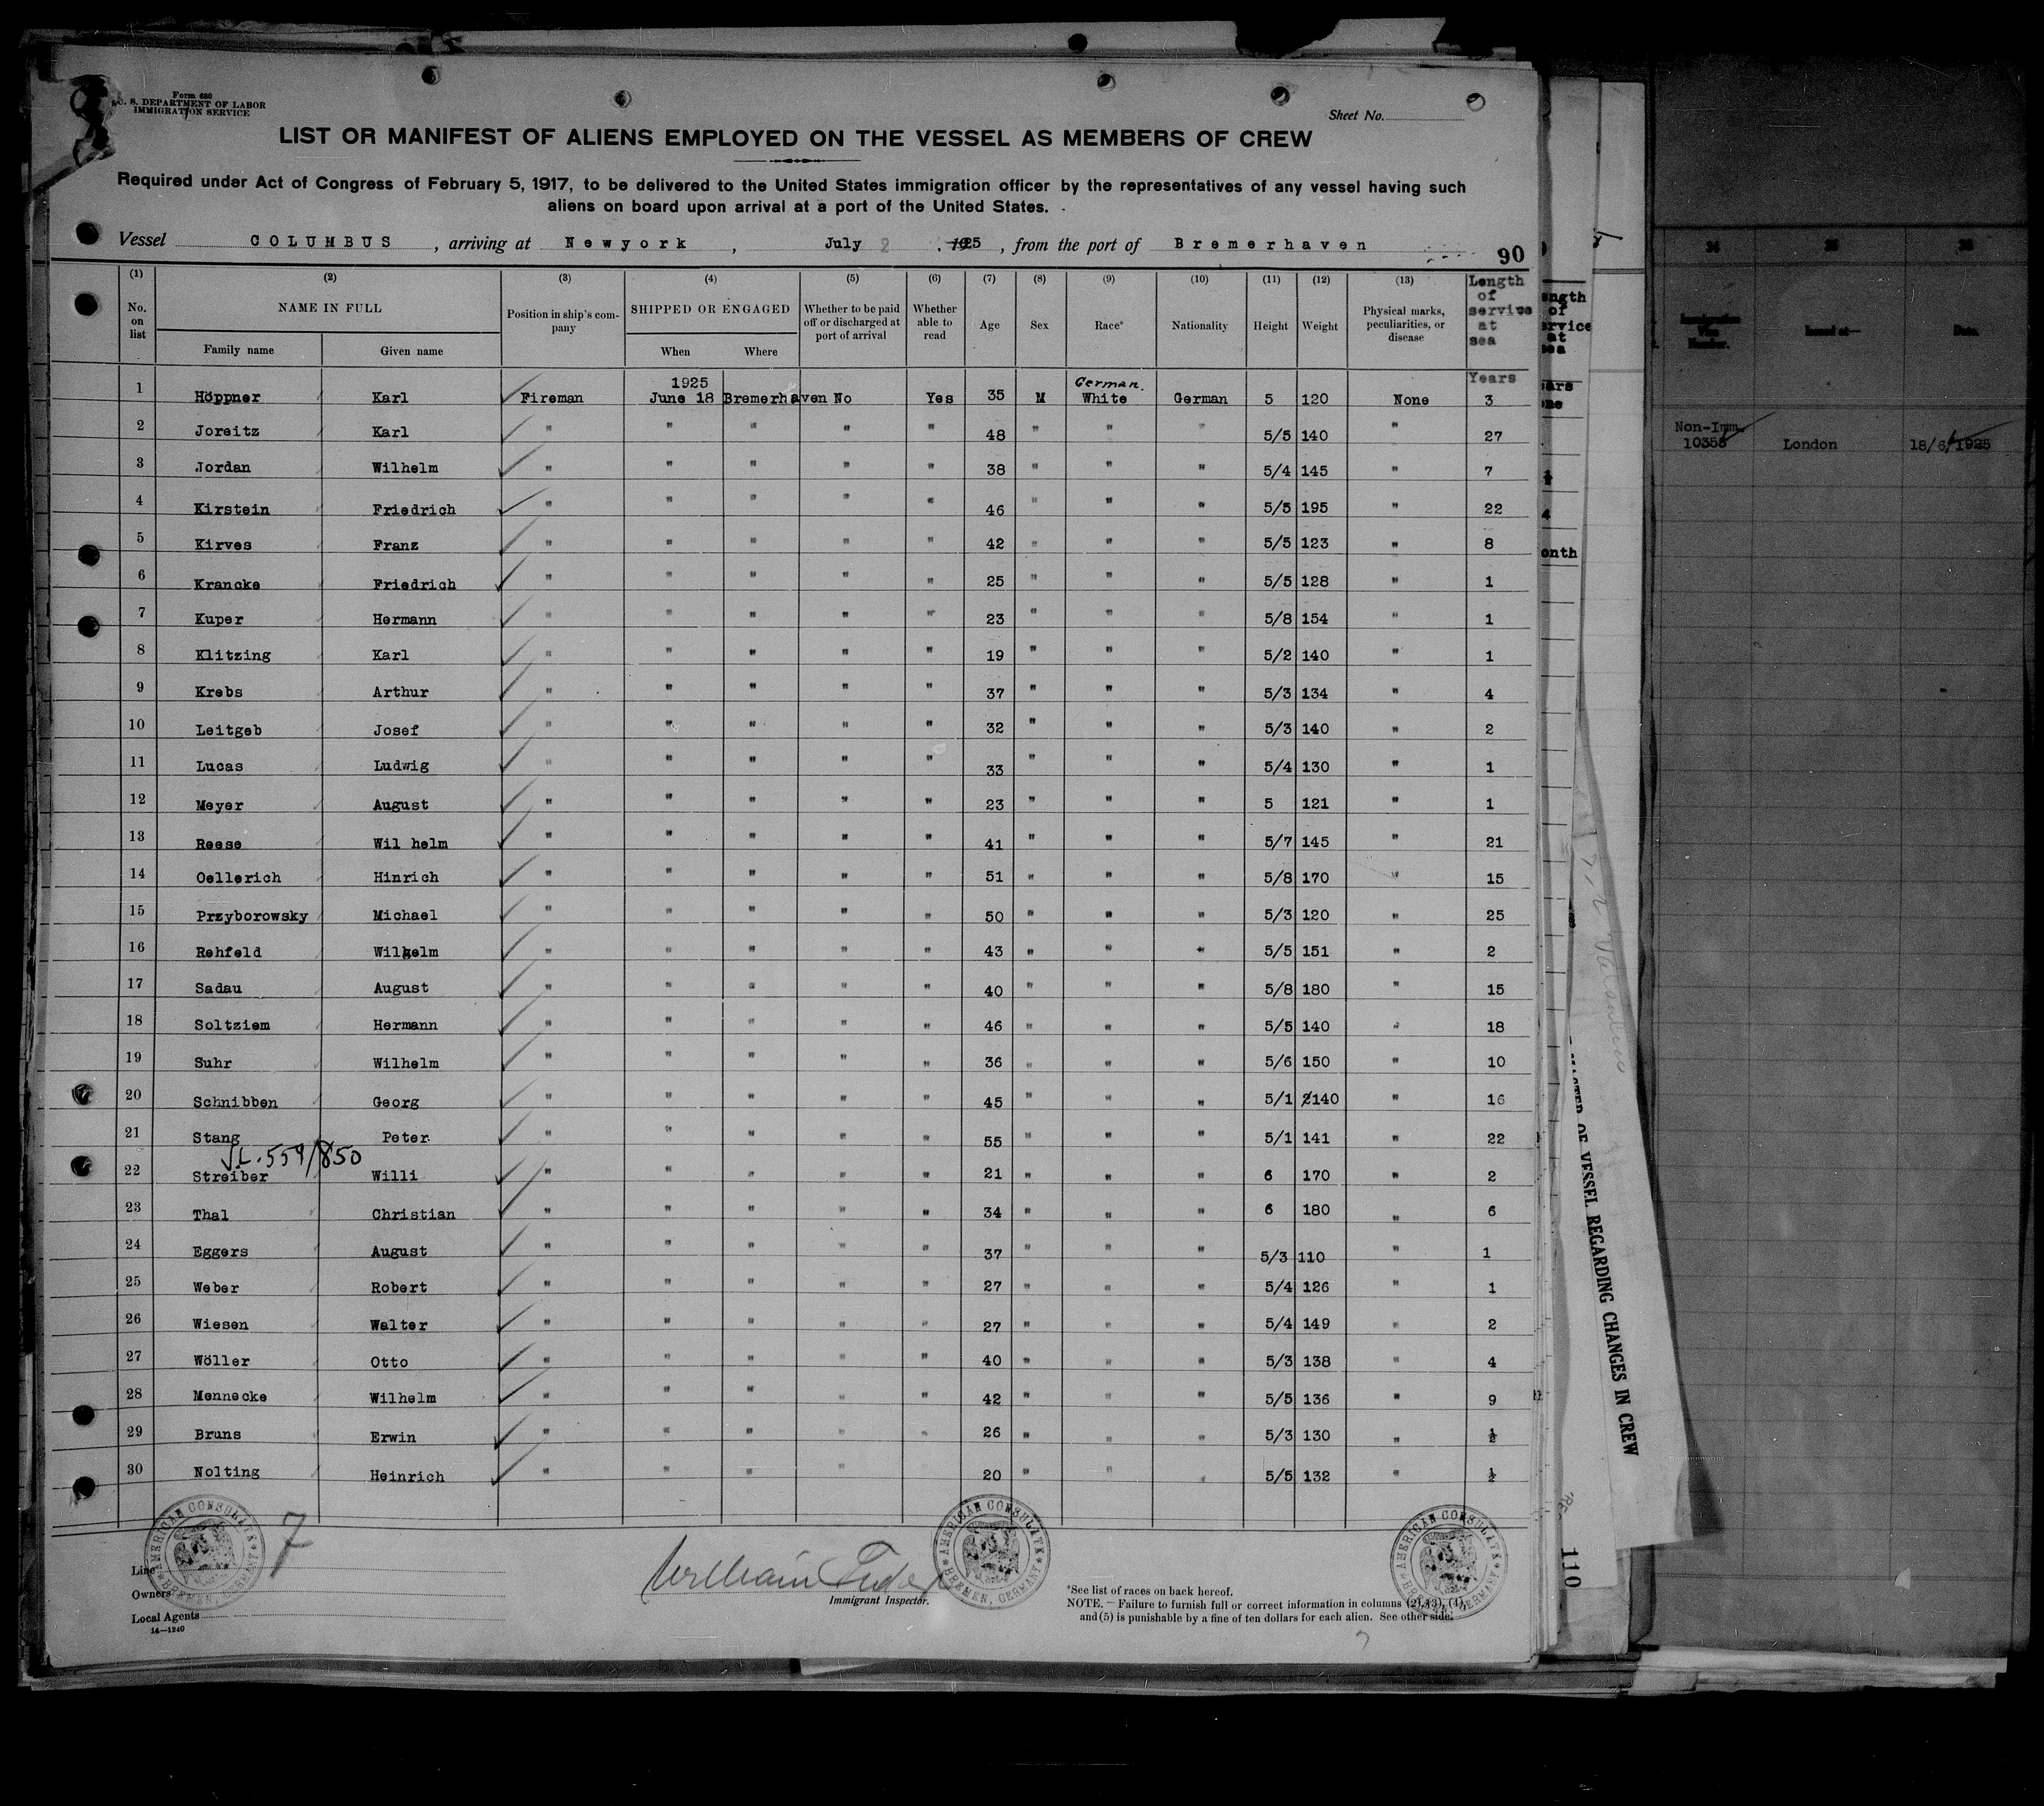 Form 680
U. S. DEPARTMENT OF LABOR
IMMIGRATION SERVICE
Sheet No.
LIST OR MANIFEST OF ALIENS EMPLOYED ON THE VESSEL AS MEMBERS OF CREW
Required under Act of Congress of February 5, 1917, to be delivered to the United States immigration officer by the representatives of any vessel having such
aliens on board upon arrival at a port of the United States.
Vessel COLUMBUS, arriving at Newyork, July 2, 1925, from the port of Bremerhaven
90
(1) (2) (3) (4) (5) (6) (7) (8) (9) (10) (11) (12) (13) Length of service at sea
No. on list NAME IN FULL Position in ship's company SHIPPED OR ENGAGED Whether to be paid off or discharged at port of arrival Whether able to read Age Sex Race* Nationality Height Weight Physical marks, peculiarities, or disease
Family name Given name When Where
1925 German. Years
1 Höppner Karl Fireman June 18 Bremerhaven No Yes 35 M White German 5 120 None 3
2 Joreitz Karl " " " " " 48 " " " 5/5 140 " 27
3 Jordan Wilhelm " " " " " 38 " " " 5/4 145 " 7
4 Kirstein Friedrich " " " " " 46 " " " 5/5 195 " 22
5 Kirves Franz " " " " " 42 " " " 5/5 123 " 8
6 Krancke Friedrich " " " " " 25 " " " 5/5 128 " 1
7 Kuper Hermann " " " " " 23 " " " 5/8 154 " 1
8 Klitzing Karl " " " " " 19 " " " 5/2 140 " 1
9 Krebs Arthur " " " " " 37 " " " 5/3 134 " 4
10 Leitgeb Josef " " " " " 32 " " " 5/3 140 " 2
11 Lucas Ludwig " " " " " 33 " " " 5/4 130 " 1
12 Meyer August " " " " " 23 " " " 5 121 " 1
13 Reese Wil helm " " " " " 41 " " " 5/7 145 " 21
14 Oellerich Hinrich " " " " " 51 " " " 5/8 170 " 15
15 Przyborowsky Michael " " " " " 50 " " " 5/3 120 " 25
16 Rehfeld Wilhelm " " " " " 43 " " " 5/5 151 " 2
17 Sadau August " " " " " 40 " " " 5/8 180 " 15
18 Soltziem Hermann " " " " " 46 " " " 5/5 140 " 18
19 Suhr Wilhelm " " " " " 36 " " " 5/6 150 " 10
20 Schnibben Georg " " " " " 45 " " " 5/1 140 " 16
21 Stang Peter " " " " " 55 " " " 5/1 141 " 22
559/850
22 Streiber Willi " " " " " 21 " " " 6 170 " 2
23 Thal Christian " " " " " 34 " " " 6 180 " 6
24 Eggers August " " " " " 37 " " " 5/3 110 " 1
25 Weber Robert " " " " " 27 " " " 5/4 126 " 1
26 Wiesen Walter " " " " " 27 " " " 5/4 149 " 2
27 Wöller Otto " " " " " 40 " " " 5/3 138 " 4
28 Mennecke Wilhelm " " " " " 42 " " " 5/5 136 " 9
29 Bruns Erwin " " " " " 26 " " " 5/3 130 " ½
30 Nolting Heinrich " " " " 20 " " " 5/5 132 " ½
AMERICAN CONSULATE BREMEN, GERMANY
AMERICAN CONSULATE BREMEN, GERMANY
AMERICAN CONSULATE BREMEN, GERMANY
7
Line
Owners
Local Agents
14—1240
William
Immigrant Inspector.
*See list of races on back hereof.
NOTE. — Failure to furnish full or correct information in columns (2), (3), (4),
and (5) is punishable by a fine of ten dollars for each alien. See other side.
OF VESSEL REGARDING CHANGES IN CREW
110
34 35 36
Number. Issued at— Date.
Non-Imm.
10358 London 18/6/1925